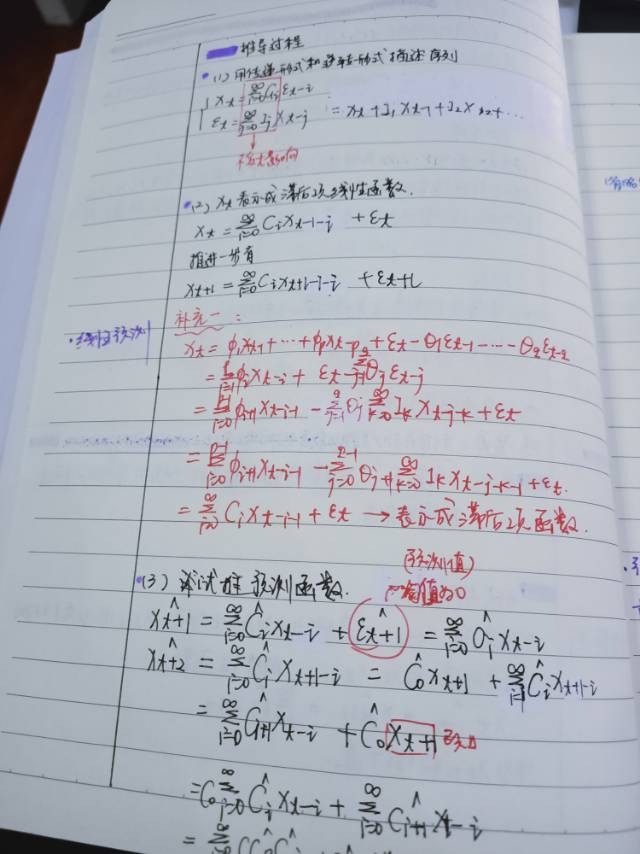 推导过程
(1) 用传递形式和逆转形式描述序列
x_t = ∑_{i=0}^{∞} G_i ε_{t-i}
ε_t = ∑_{j=0}^{∞} I_j x_{t-j} = x_t + I_1 x_{t-1} + I_2 x_{t-2} + ...
(2) x_t 表示成滞后项线性函数.
x_t = ∑_{i=0}^{∞} C_i x_{t-1-i} + ε_t
推进一步有
x_{t+1} = ∑_{i=0}^{∞} C_i x_{t+1-1-i} + ε_{t+1}
补充一:
·线性预测
x_t = φ_1 x_{t-1} + ... + φ_p x_{t-p} + ε_t - θ_1 ε_{t-1} - ... - θ_q ε_{t-q}
= ∑_{i=1}^{p} φ_i x_{t-i} + ε_t - ∑_{j=1}^{q} θ_j ε_{t-j}
= ∑_{i=0}^{p-1} φ_{i+1} x_{t-i-1} - ∑_{j=1}^{q} θ_j ∑_{k=0}^{∞} I_k x_{t-j-k} + ε_t
= ∑_{i=0}^{p-1} φ_{i+1} x_{t-i-1} - ∑_{j=0}^{q-1} θ_{j+1} ∑_{k=0}^{∞} I_k x_{t-j-k-1} + ε_t.
= ∑_{i=0}^{∞} C_i x_{t-i-1} + ε_t → 表示成滞后项函数.
(预测值)
(3) 预测函数.
均值为0
x̂_{t+1} = ∑_{i=0}^{∞} Ĉ_i x_{t-i} + ε̂_{t+1} = ∑_{i=0}^{∞} Ĉ_i x_{t-i}
x̂_{t+2} = ∑_{i=0}^{∞} Ĉ_i x_{t+1-i} = Ĉ_0 x_{t+1} + ∑_{i=1}^{∞} Ĉ_i x_{t+1-i}
= ∑_{i=0}^{∞} Ĉ_{i+1} x_{t-i} + Ĉ_0 x_{t+1}
= C_0 ∑_{i=0}^{∞} Ĉ_i x_{t-i} + ∑_{i=0}^{∞} Ĉ_{i+1} x_{t-i}